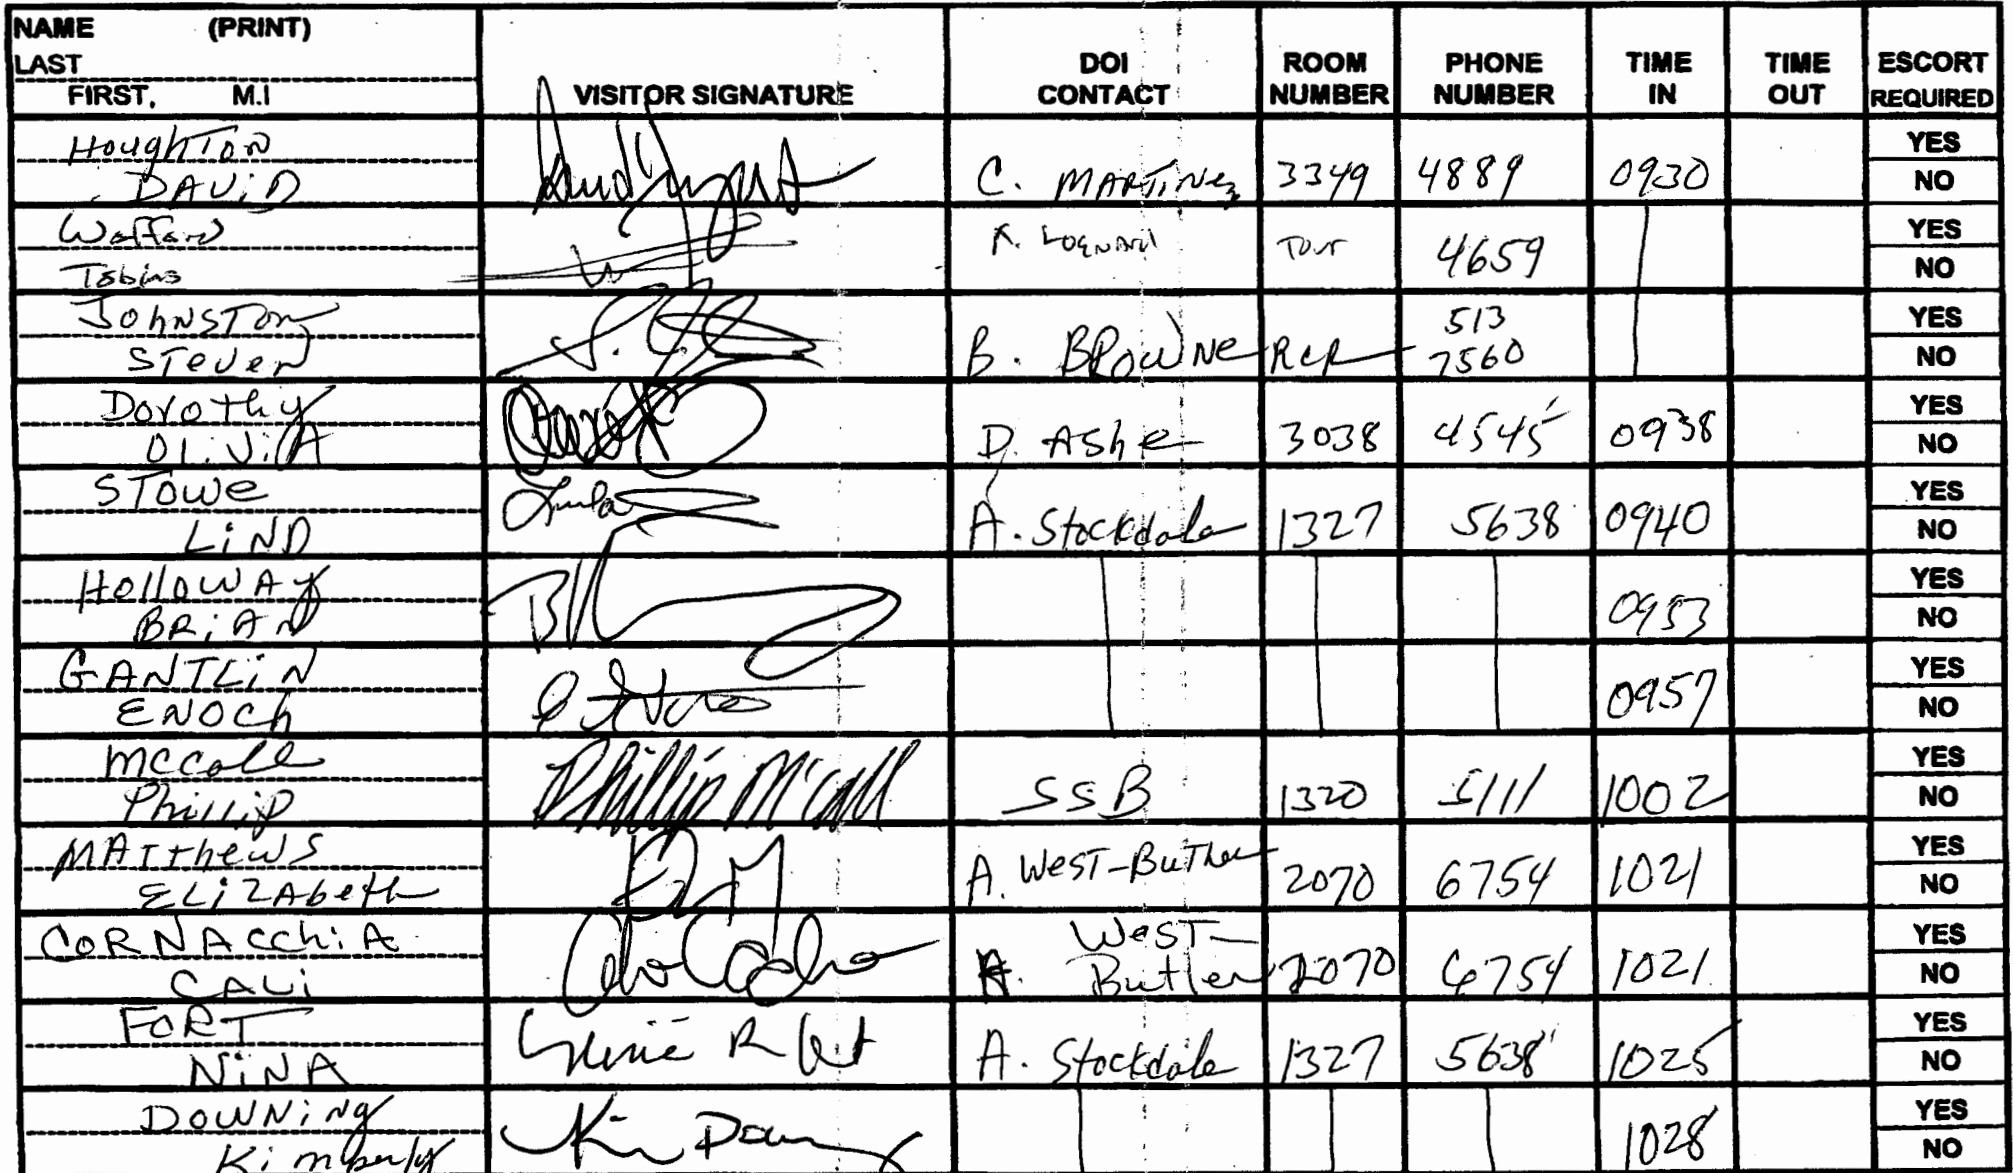 NAME (PRINT)
LAST
FIRST, M.I
VISITOR SIGNATURE
DOI
CONTACT
ROOM
NUMBER
PHONE
NUMBER
TIME
IN
TIME
OUT
ESCORT
REQUIRED
Houghton
DAViD
C. MARTiNez 3349 4889 0930
YES
NO
Woffard
Tobias
Tour 4659
YES
NO
JOHNSTON
STeven
B. BRowNe RCR 513
7560
YES
NO
Dorothy
OLiViA
D. Ashe 3038 4545 0938
YES
NO
STowe
LiND
A. Stockdale 1327 5638 0940
YES
NO
HolloWAy
BRiAN
0953
YES
NO
GANTLiN
ENOCh
0957
YES
NO
McCall
Phillip
Phillip McCall
SSB 1320 5111 1002
YES
NO
MATthewS
ELiZAbeth
A. WeST-Butler 2070 6754 1021
YES
NO
CoRNAcchiA
CALi
A. WeST-
Butler 2070 6754 1021
YES
NO
FORT
NiNA
A. Stockdale 1327 5638 1025
YES
NO
DOWNiNg
Kimberly
1028
YES
NO